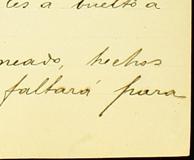 es a vuelto a
neado, hechos
faltará para